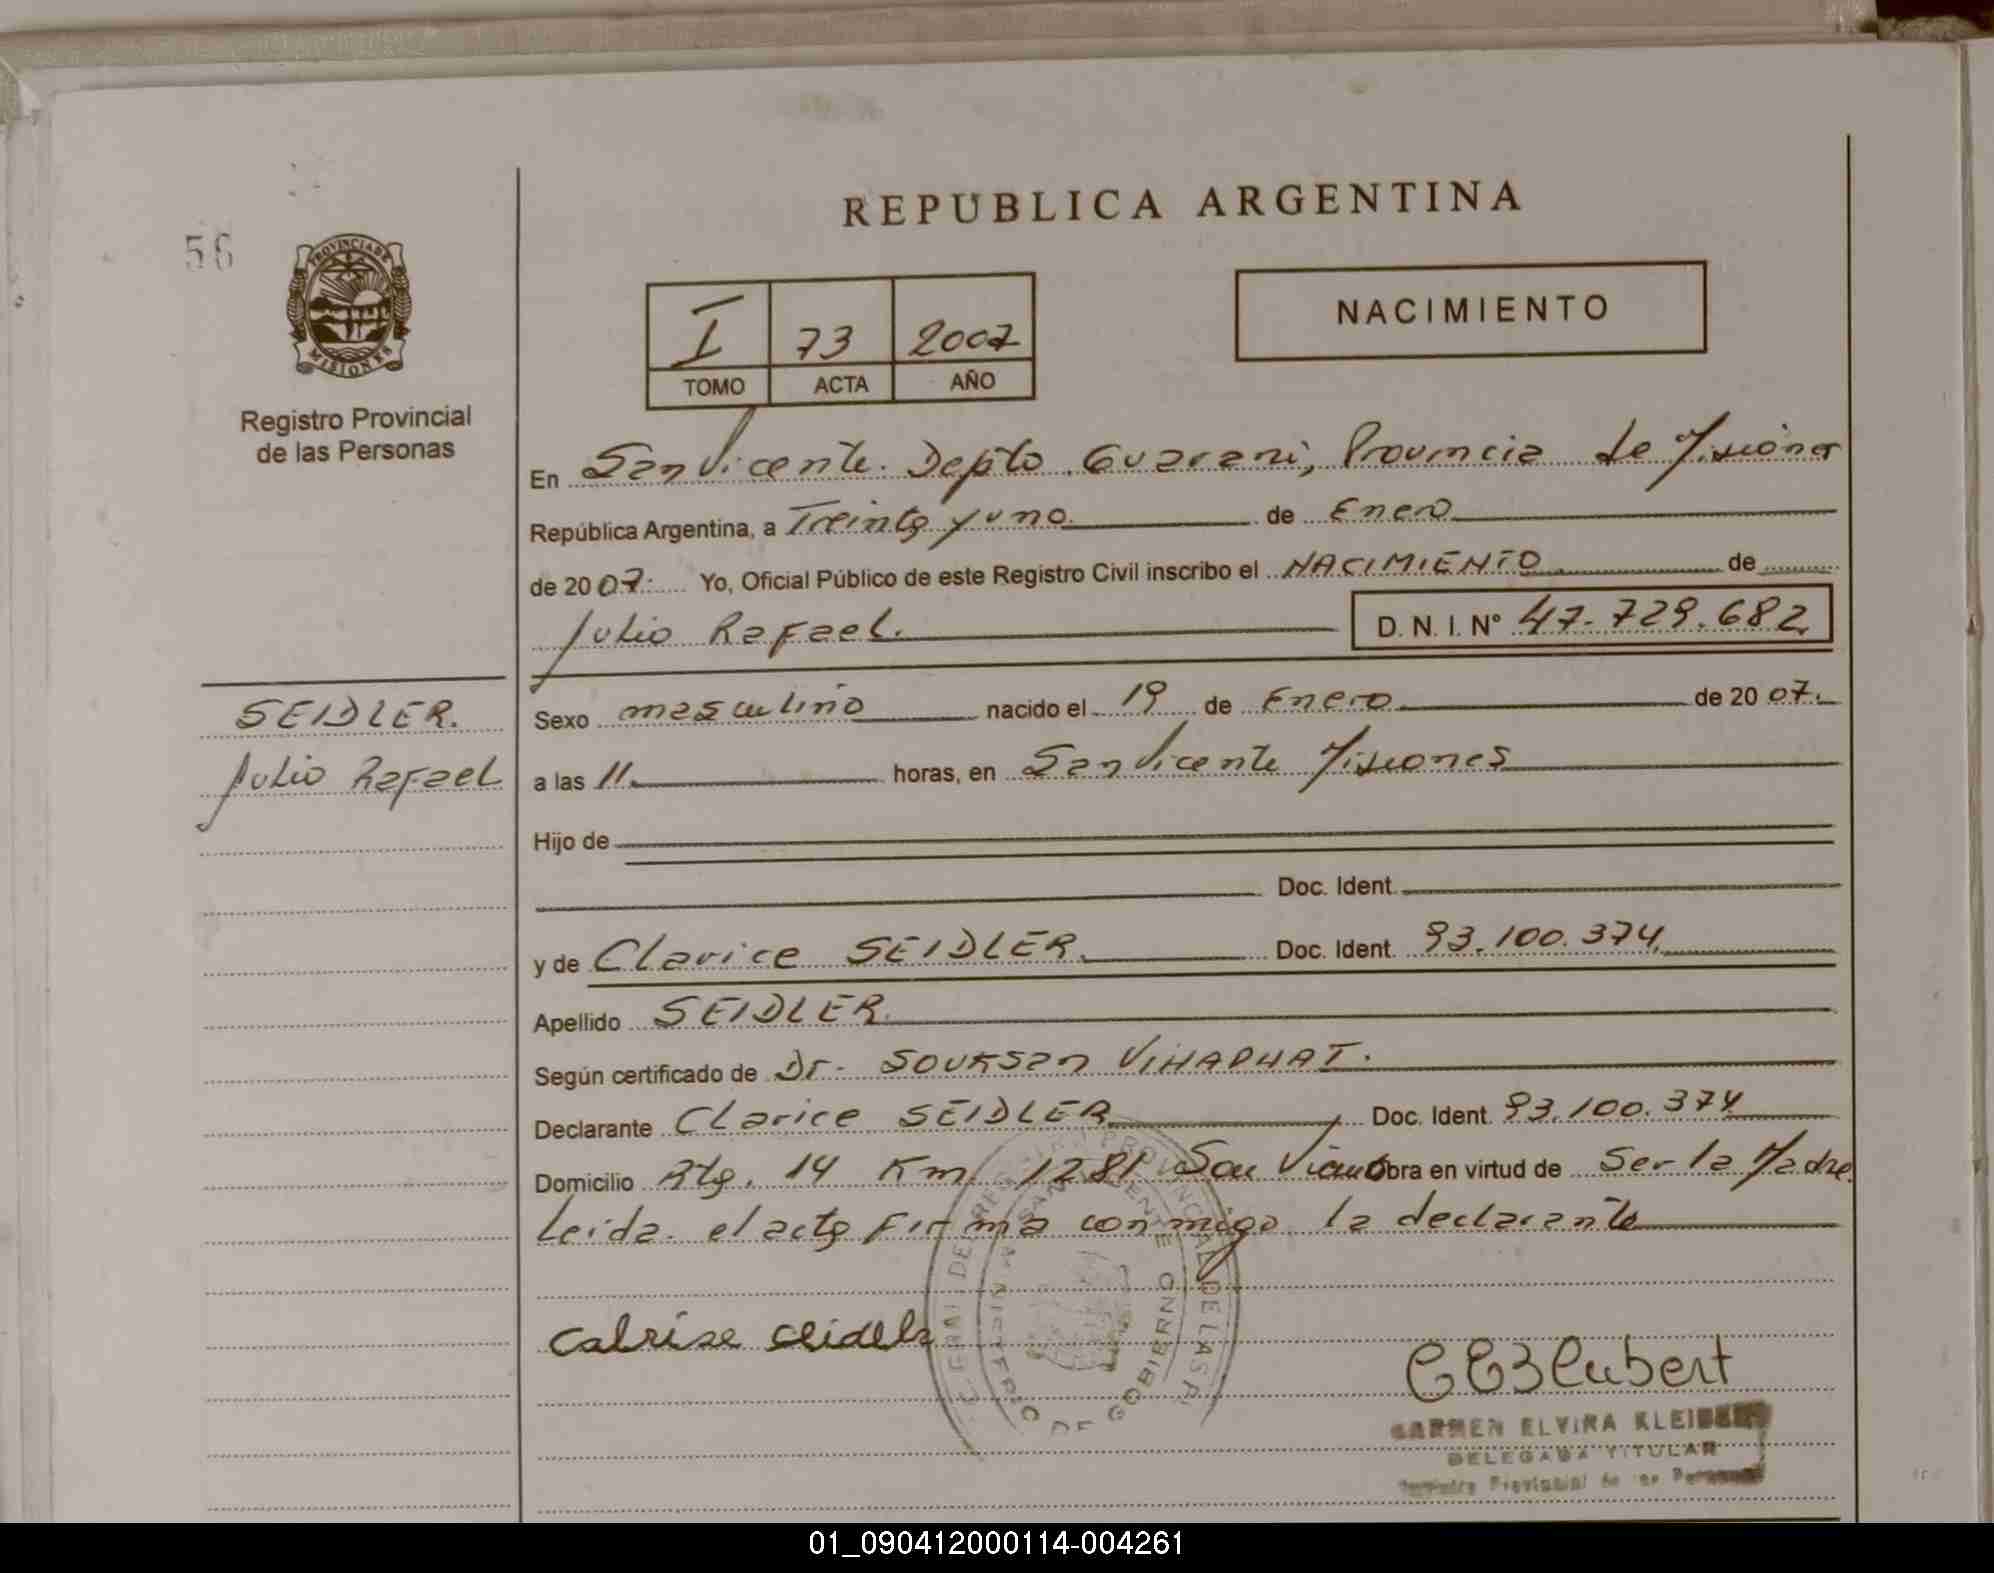 56
PROVINCIA DE
MISIONES
Registro Provincial
de las Personas
REPUBLICA ARGENTINA
I 73 2007
TOMO ACTA AÑO
NACIMIENTO
En San Vicente. Depto Guarani, Provincia de Misiones
República Argentina, a Treinta y uno de Enero
de 2007. Yo, Oficial Público de este Registro Civil inscribo el NACIMIENTO de
Julio Rafael. D. N. I. N° 47.729.682
SEIDLER.
Julio Rafael
Sexo masculino nacido el 19 de Enero de 2007.
a las 11. horas, en San Vicente Misiones
Hijo de
Doc. Ident.
y de Clarice SEIDLER. Doc. Ident. 93.100.374
Apellido SEIDLER.
Según certificado de Dr. SOUKSAN VIHAPHAT.
Declarante Clarice SEIDLER Doc. Ident. 93.100.374
Domicilio Rta. 14 Km 1281 San Vicente obra en virtud de Ser la Madre
Leida el acta Firma conmigo la declarante
REGISTRO PROVINCIAL DE LAS P
SAN VICENTE
MINISTERIO DE GOBIERNO
Calrise ceidels
CARMEN ELVIRA
DELEGADA TITULAR
Registro Provincial de las Personas
01_090412000114-004261